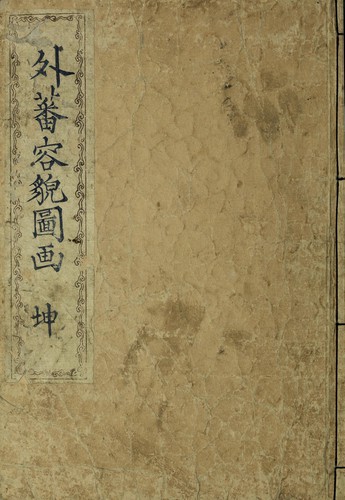 外蕃容貌圖画 坤